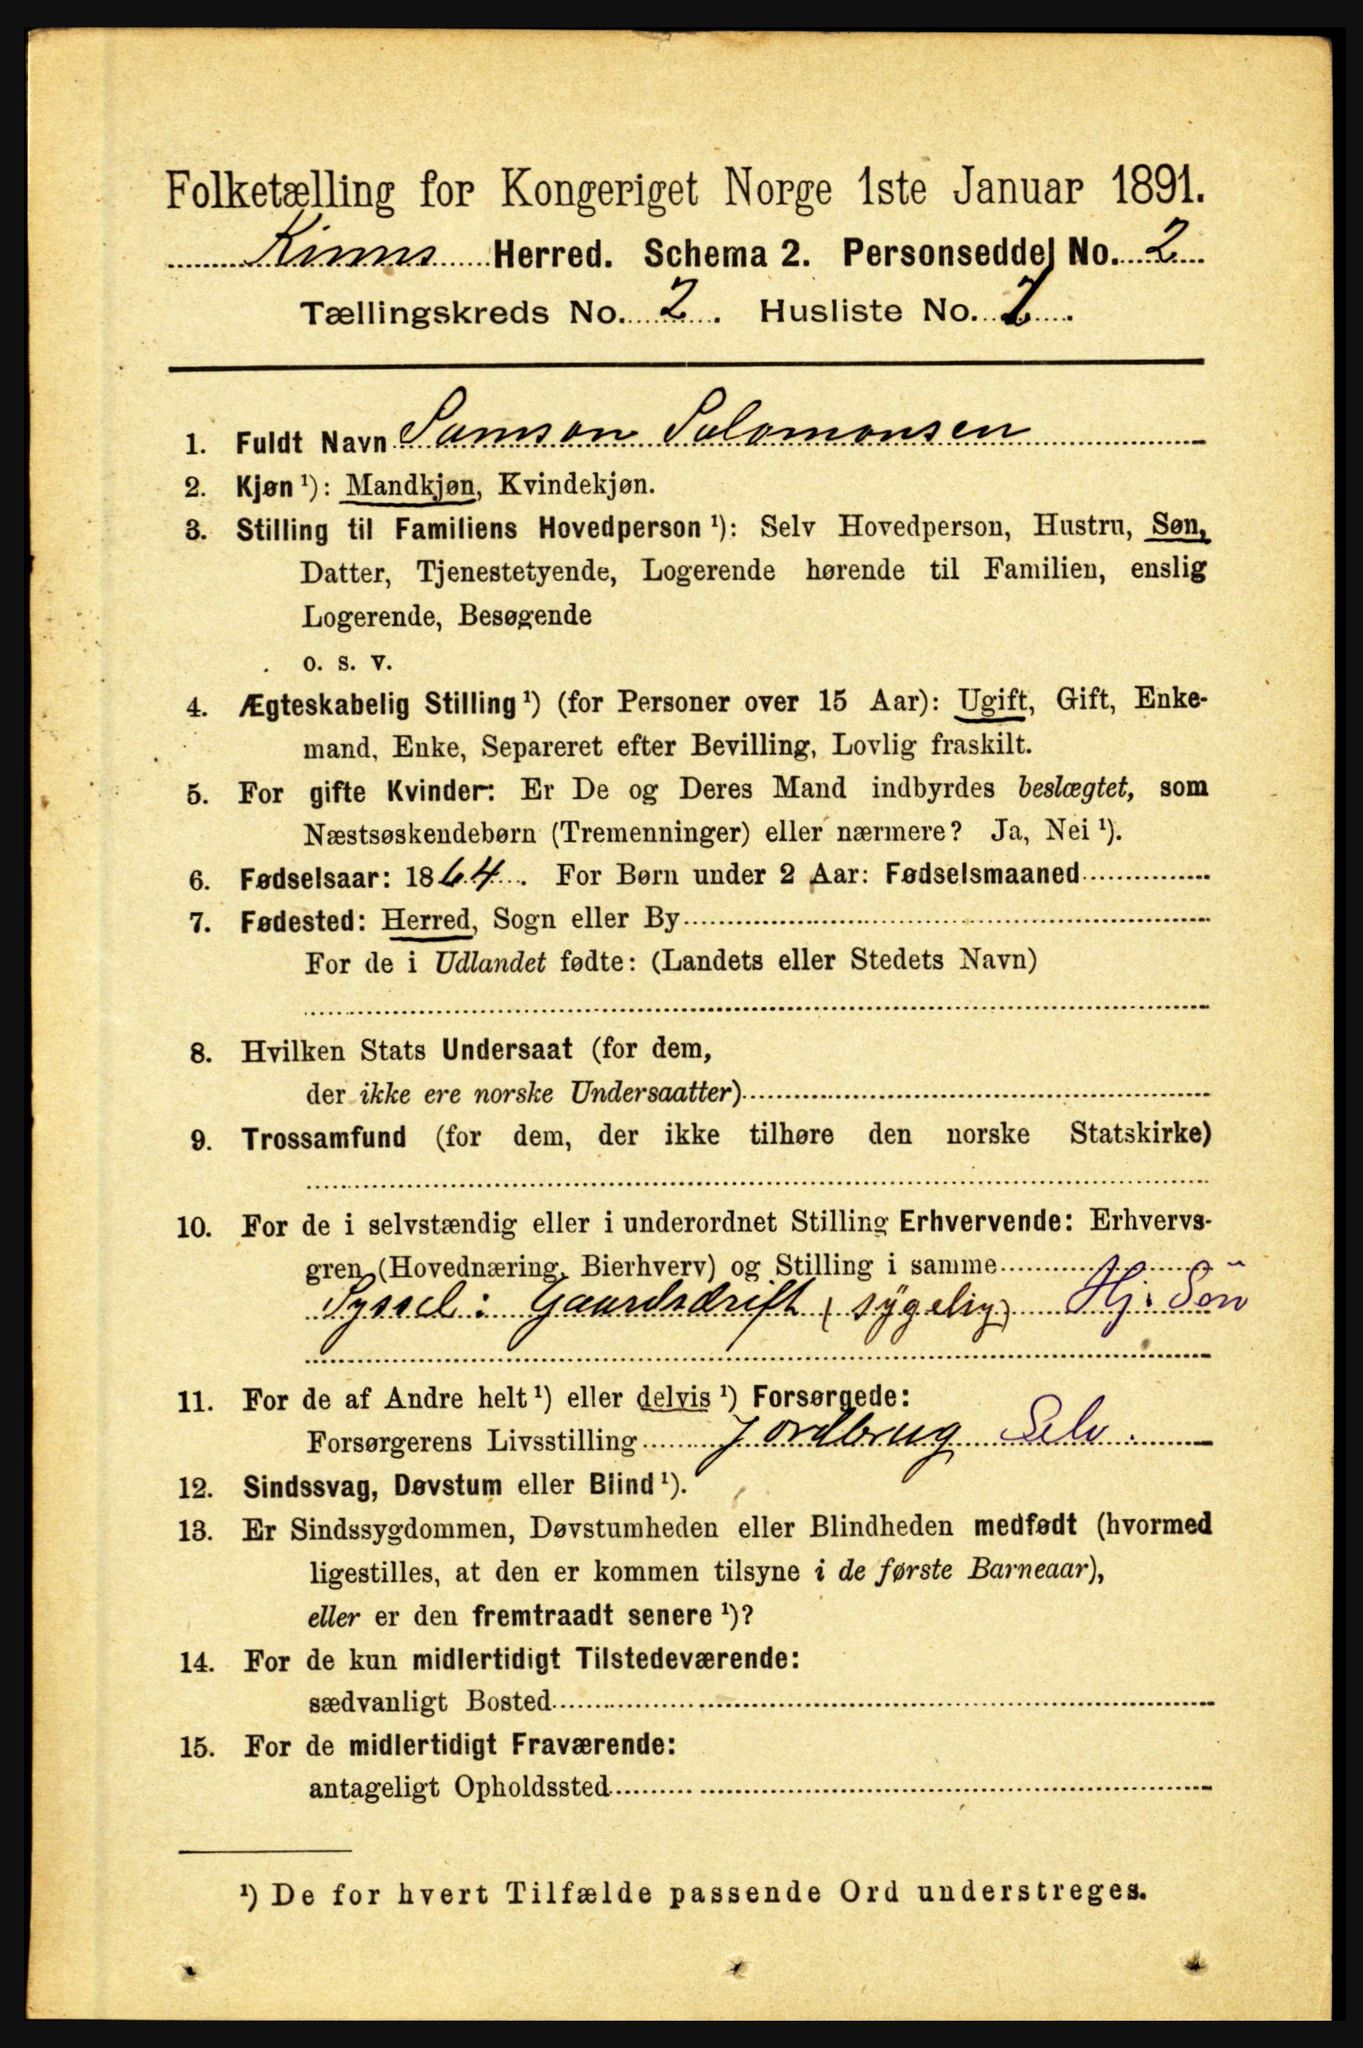 Folketælling for Kongeriget Norge 1ste Januar 1891.
Kinns Herred. Schema 2. Personseddel No. 2
Tællingskreds No. 2. Husliste No. 2.
1. Fuldt Navn Samson Salomonsen
2. Kjøn ¹): Mandkjøn, Kvindekjøn.
3. Stilling til Familiens Hovedperson ¹): Selv Hovedperson, Hustru, Søn,
Datter, Tjenestetyende, Logerende hørende til Familien, enslig
Logerende, Besøgende
o. s. v.
4. Ægteskabelig Stilling ¹) (for Personer over 15 Aar): Ugift, Gift, Enke-
mand, Enke, Separeret efter Bevilling, Lovlig fraskilt.
5. For gifte Kvinder: Er De og Deres Mand indbyrdes beslægtet, som
Næstsøskendebørn (Tremenninger) eller nærmere? Ja, Nei ¹).
6. Fødselsaar: 1864. For Børn under 2 Aar: Fødselsmaaned
7. Fødested: Herred, Sogn eller By
For de i Udlandet fødte: (Landets eller Stedets Navn)
8. Hvilken Stats Undersaat (for dem,
der ikke ere norske Undersaatter)
9. Trossamfund (for dem, der ikke tilhøre den norske Statskirke)
10. For de i selvstændig eller i underordnet Stilling Erhvervende: Erhvervs-
gren (Hovednæring, Bierhverv) og Stilling i samme
Syssel: Gaardsdrift (sygelig) Hj. Søn
11. For de af Andre helt ¹) eller delvis ¹) Forsørgede:
Forsørgerens Livsstilling Jordbrug Selv.
12. Sindssvag, Døvstum eller Blind ¹).
13. Er Sindssygdommen, Døvstumheden eller Blindheden medfødt (hvormed
ligestilles, at den er kommen tilsyne i de første Barneaar),
eller er den fremtraadt senere ¹)?
14. For de kun midlertidigt Tilstedeværende:
sædvanligt Bosted
15. For de midlertidigt Fraværende:
antageligt Opholdssted
¹) De for hvert Tilfælde passende Ord understreges.